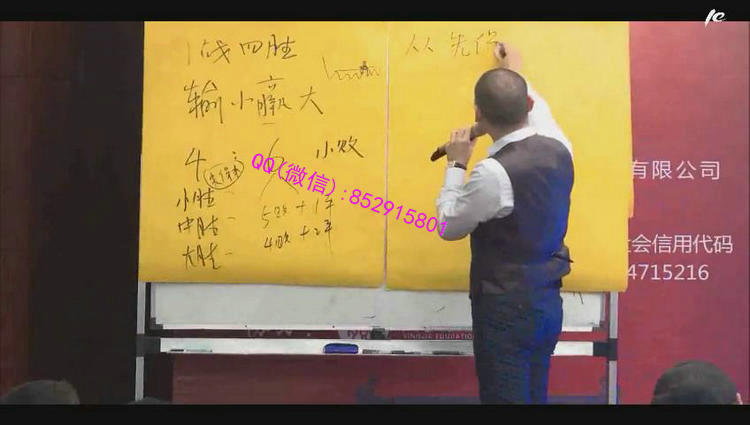 1战四胜
输小赢大
4:
小败
小胜
中胜
大胜
5败+1平
4败+2平
从 先
QQ(微信):852915801
有限公司
会信用代码
4715216